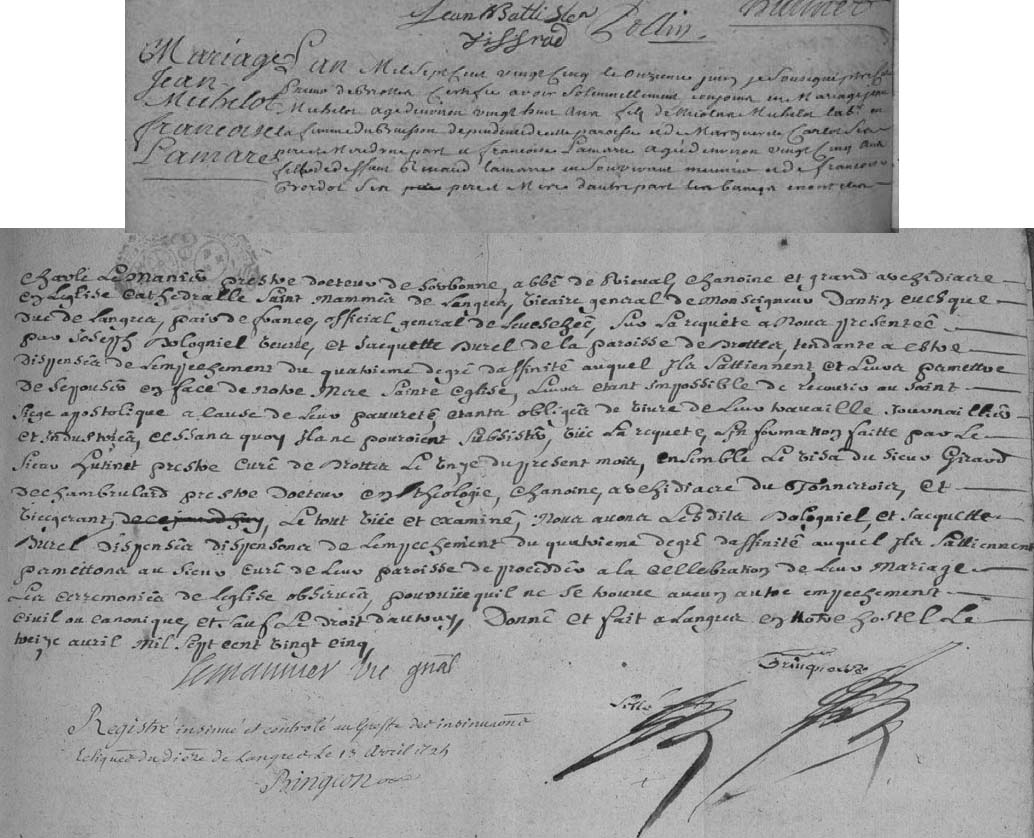 Jean Battiste
Tissrad Collin.
Mariage L'an Mil sept Cent vingt Cinq le onzieme juin je sousigné
Jean Certifie avoir solemnellement conjoin en Mariage jean
Michelot Michelot agé denviron vingt huit ans fils de Nicolas Michelot lab. en
francoise la ferme du Buisson dependente de cette paroisse et de Marguerite Carlot ses
Lamare pere et Mere d'une part et francoise Lamarre agée denviron vingt Cinq ans
fille de deffunt Renaud lamarre en son vivant meunier et de francoise
Bordot ses pere et Mere d'autre part les bans en ont eté
Charle LeManier prestre docteur de Sorbonne, abbé de Brieval, Chanoine et grand archidiacre
en Leglise Cathedralle Saint Mammes de Langres, Vicaire general de Monseigneur Dantin evesque
duc de Langres, pair de france, official general de Levesché, sur La requête a Nous presentée
par Joseph Bologniel veuve, et Jacquette Burel de la paroisse de Brottes, tendante a estre
dispensés de Lempechement du quatrieme degré daffinité auquel Ils sattiennent et Leur permettre
de sepouser en face de Notre Mere Sainte Eglise, Leur etant impossible de recourir au Saint
siege apostolique a cause de Leur pauvreté, etants obligés de vivre de Leur travaille Journaillier
et industrie, et sans quoy Ils ne pouroient subsister, Vüe La requete, Linformation faitte par Le
Sieur Hutinet prestre Curé de Brottes Le Onze du present mois, ensemble Le visa du Sieur Girard
de Chambrulard prestre Docteur en theologie, Chanoine, archidiacre du Tonnerrois, et
Vicegerant, Le tout vüe et examiné, Nous avons Lesdits Bologniel, et Jacquette
Burel dispensés dispensons de Lempechement du quatrieme degré daffinité auquel Ils sattiennent
permettons au Sieur Curé de Leur paroisse de proceder a la Cellebration de Leur Mariage
Les Ceremonies de Leglise observées, pourvüe quil ne se trouve aucun autre empechement
Civil ou canonique, et sauf Le droit d'autruy, Donné et fait a Langres en notre hostel Le
treize avril Mil sept cent vingt cinq
Lemannier vic gnal
Registré insinué et controlé au Greffe des insinuaons
Ecliques du dioze de Langres Le 13 Avril 1725